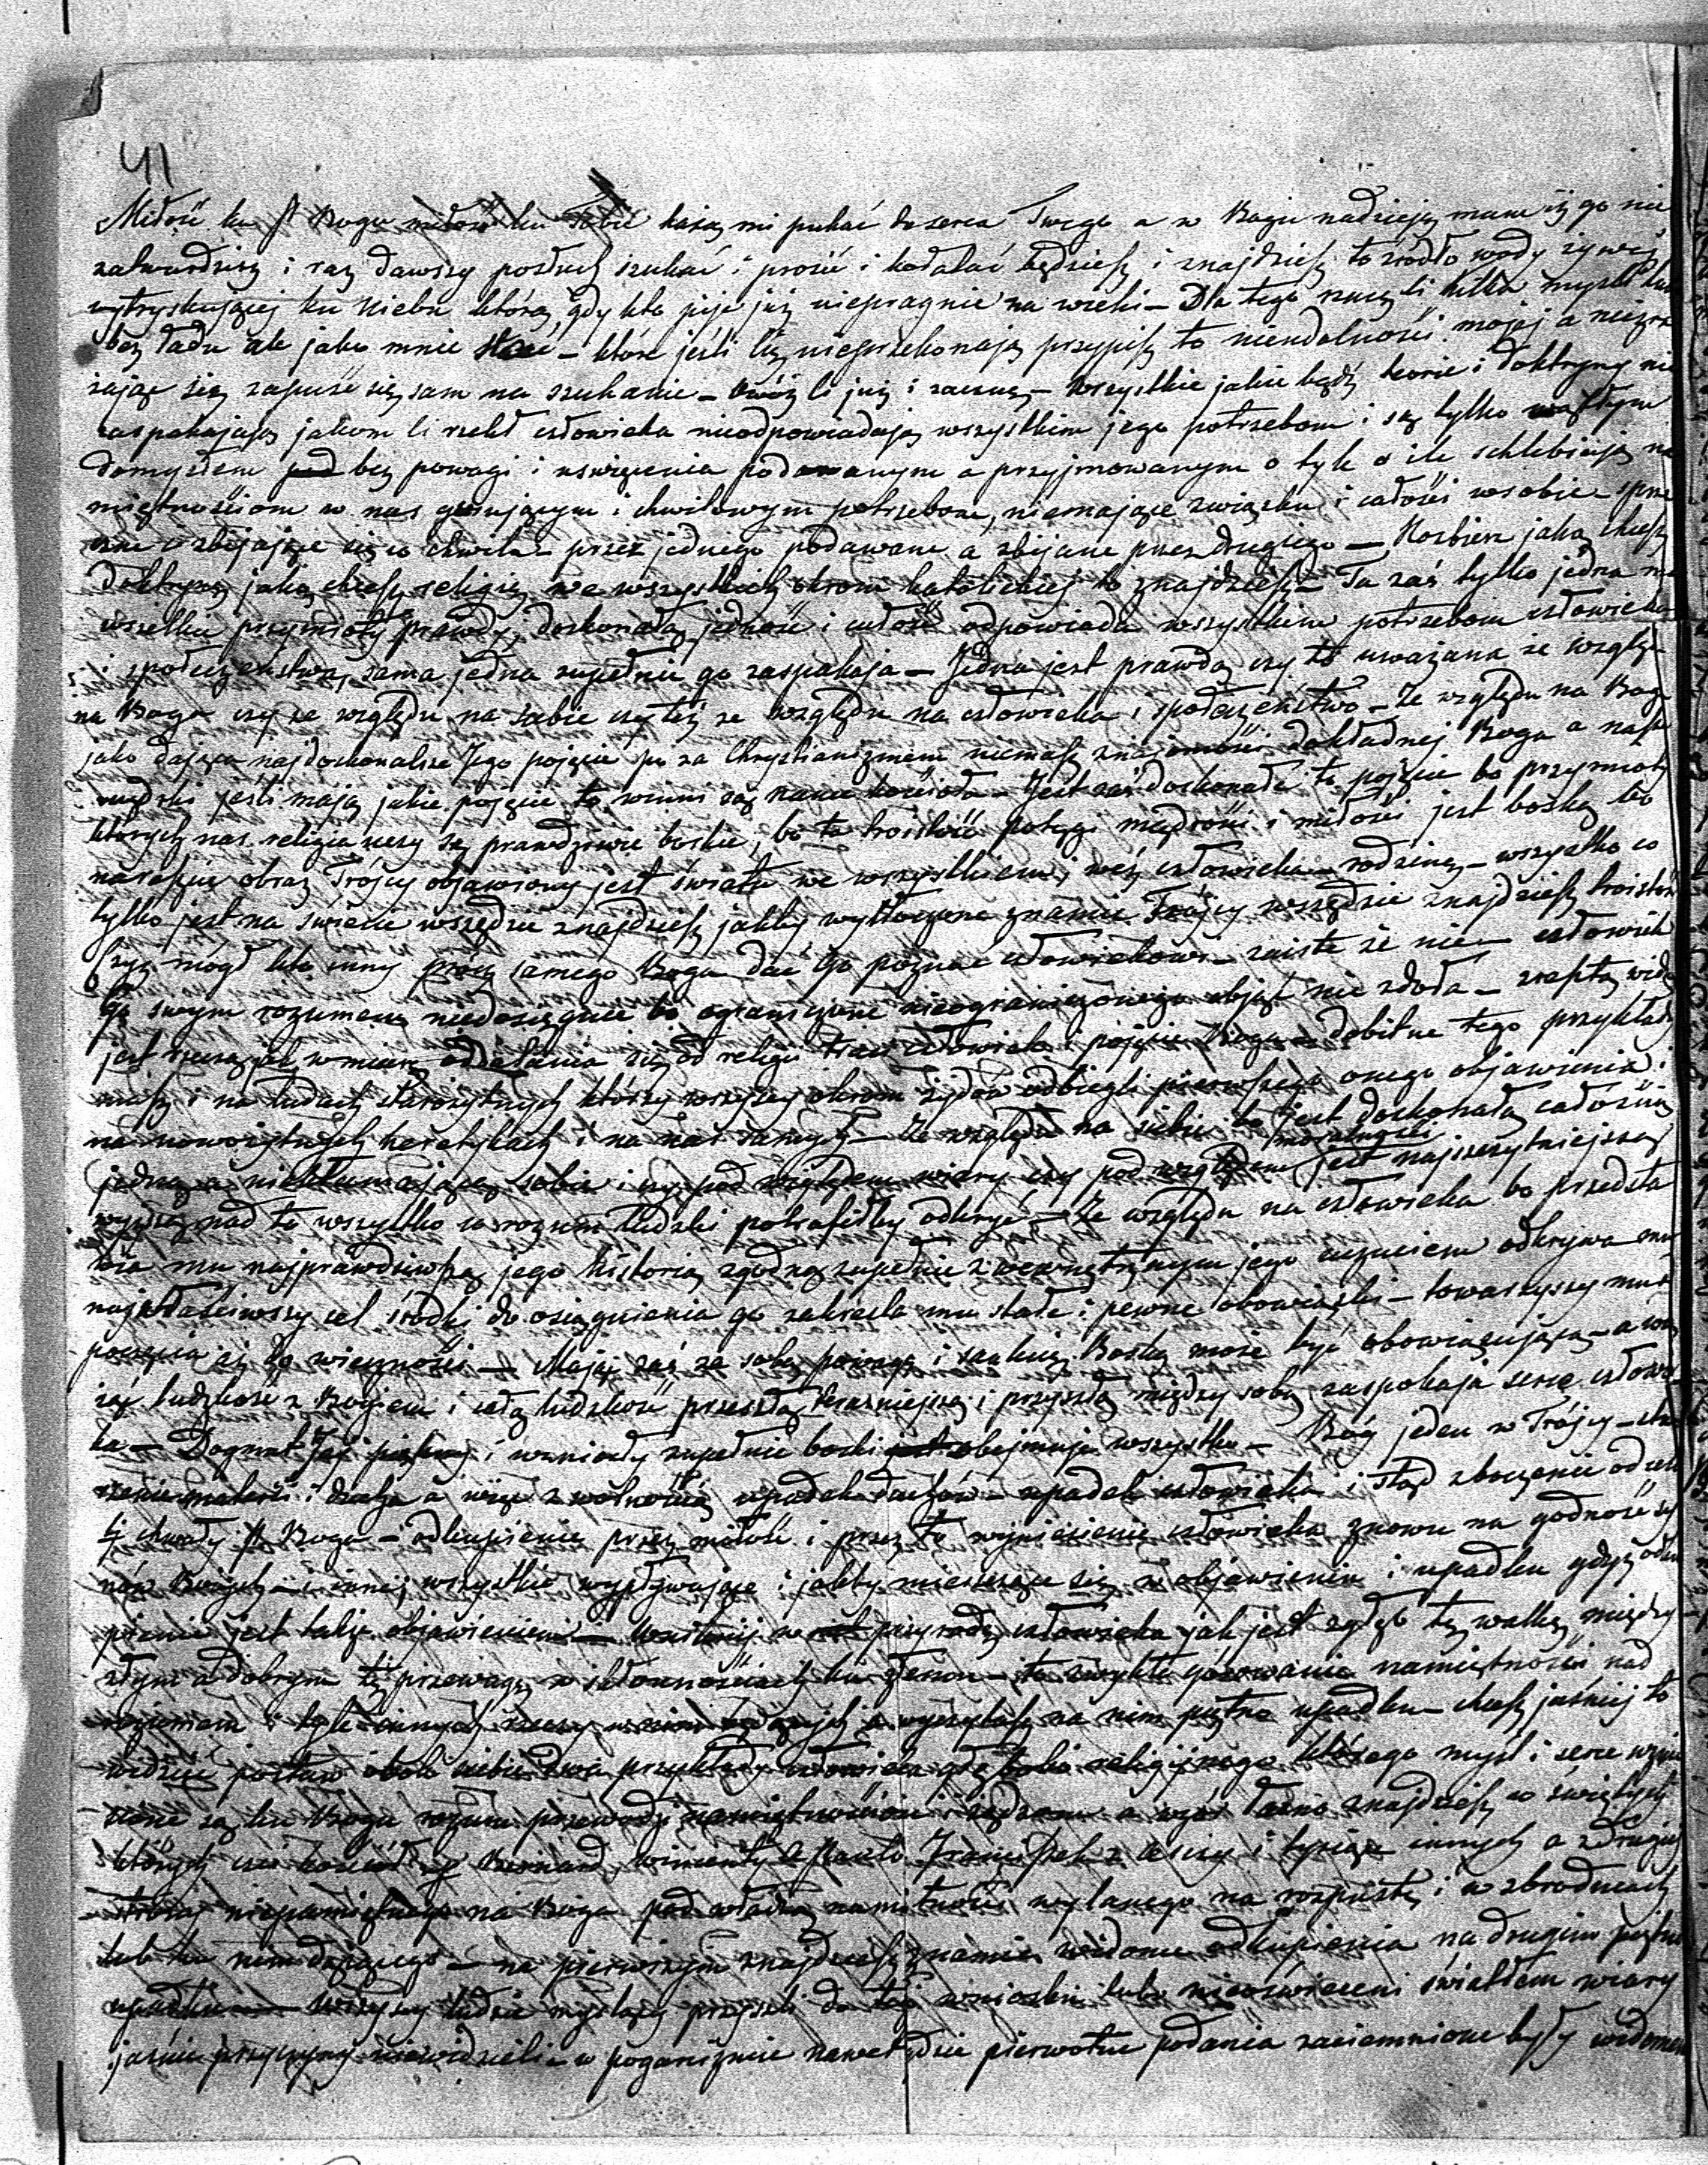 41
Miłość ku P Bogu miłość ku Tobie każą mi pukać do serca Twego a w Bogu nadzieję mam iż go nie
zatwardzisz i raz dawszy posłuch szukać i prosić i kołatać będziesz i znajdziesz to źródło wody żywej
wytryskującej ku niebu którą gdy kto pije już niepragnie na wieki – Dla tego rzucę ci kilka myśli
bez ładu ale jako mnie – które jeśli Cię nieprzekonają przypisz to nieudolności mojej a niezra
żając się zapuść się sam na szukanie – owóż ci już i zacznę – Wszystkie jakie bądź teorie i doktryny nie
zaspakajają jakom ci rzekł człowieka nieodpowiadają wszystkim jego potrzebom i są tylko wątłym
domysłem bez powagi i uświęcenia podawanym a przyjmowanym o tyle o ile schlebiają na
miętnościom w nas górującym i chwilowym potrzebom, niemające związku i całości w sobie – sprze
czne i zbijające się co chwila – przez jednego podawane a zbijane przez drugiego — Rozbierz jaką chcesz
doktrynę jaką chcesz religię we wszystkich okrom katolickiej to znajdziesz – Ta zaś tylko jedna ma
wszelkie przymioty prawdy, doskonałą jedność i całość odpowiada wszystkim potrzebom człowieka
i społeczeństwa, sama jedna zupełnie go zaspakaja – Jedna jest prawdą czy to uważana ze względu
na Boga czy ze względu na siebie czy też ze względu na człowieka i społeczeństwo – Ze względu na Boga
jako dająca najdoskonalsze Jego pojęcie po za Chrystianizmem niemasz znajomości dokładnej Boga a nasi
mędrki jeśli mają jakie pojęcie to winni są nauce kościoła – Jest zaś doskonałe to pojęcie bo przymioty
których nas religia uczy są prawdziwie boskie, bo ta troistość potęgi mądrości i miłości jest boską bo
nareszcie obraz Trójcy objawiony jest światu we wszystkiem, weź człowieka – rodzinę – wszystko co
tylko jest na świecie wszędzie znajdziesz jakby wytłoczone znamię Trójcy wszędzie znajdziesz troistość
Czyż mógł kto inny prócz samego Boga dać Go poznać człowiekowi – zaiste że nie — człowiek
Go swym rozumem niedosięgnie bo ograniczone nieograniczonego objąć nie zdoła – zresztą widzę
jest rzeczą jak w miarę oddalania się od religii traci człowiek i pojęcie Boga – dobitne tego przykłady
masz i na ludach starożytnych którzy wszyscy okrom żydów odbiegli pierwszego onego objawienia i
na nowożytnych heretykach i na nas samych – Ze względu na siebie bo jest doskonałą całością
jedną a niekłamającą sobie i czy pod względem wiary czy pod względem moralności jest najszczytniejszą
wyższą nad to wszystko co rozum ludzki potrafiłby odkryć – Ze względu na człowieka bo przedsta
wia mu najprawdziwszą jego historię zgodną zupełnie z wewnętrznym jego uczuciem odkrywa mu
najwłaściwszy cel środki do osiągnienia go zakreśla mu stałe i pewne obowiązki – towarzyszy mu od
poczęcia aż do wieczności – Mając zaś za sobą powagę i sankcję Boską może być obowiązującą – a wią
żąc ludzkość z Bogiem i całą ludzkość przeszłą teraźniejszą i przyszłą między sobą zaspokaja serce człowie
ka – Dogmat Jej piękny i wzniosły zupełnie boski obejmuje wszystko – Bóg jeden w Trójcy – stwo
rzenie materii i ducha a więc z wolnością upadek duchów – upadek człowieka i stąd zboczenie od celu
tj chwały P Boga – odkupienie przez miłość i przez to wyniesienie człowieka znowu na godność sy
nów Bożych – i inne wszystkie wypływające i jakby mieszczące się w objawieniu i upadku gdyż odku
pienie jest także objawieniem — przyrodę człowieka jak jest zgłęb tę walkę między
złym a dobrym tę przewagę w skłonnościach ku złemu – to zwykłe górowanie namiętności nad
rozumem i tyle innych rzeczy a wyczytasz na nim piętno upadku – chcesz jaśniej to
widzieć postaw obok siebie dwa przykłady człowieka głęboko religijnego którego myśl i serce wznie
sione są ku Bogu rozum przewodzi namiętnościom i żądzom a wzór łatwo znajdziesz w świętych
których czci kościół Bernard, wincenty a Paulo Franciszek z i tysiące innych a z drugiej
strony niepamiętnego na Boga pod władzą namiętności wylanego na rozpustę i w zbrodniach
lub ku nim dążącego – na pierwszym znajdziesz znamię widome odkupienia na drugim piętno
upadku — wszyscy ludzie myślący przyszli do tej wniosku lubo nieoświeceni światłem wiary
jaśnie przyczyny niewidzieli – w poganizmie nawet gdzie pierwotne podania zaciemnione były widomem